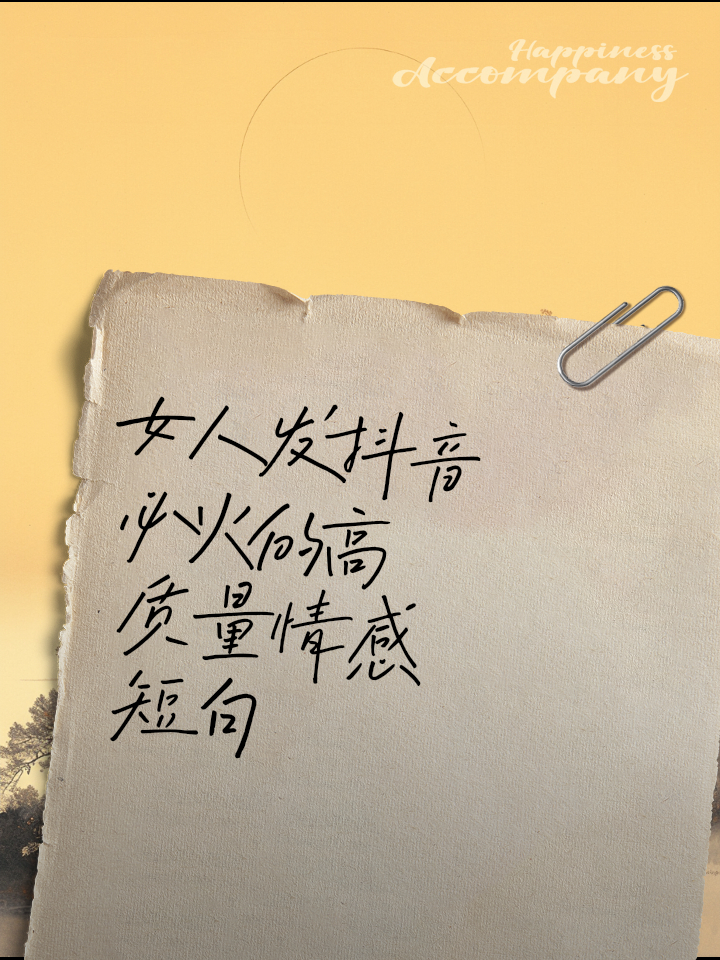 Happiness
Accompany
女人发抖音
必火的高
质量情感
短句